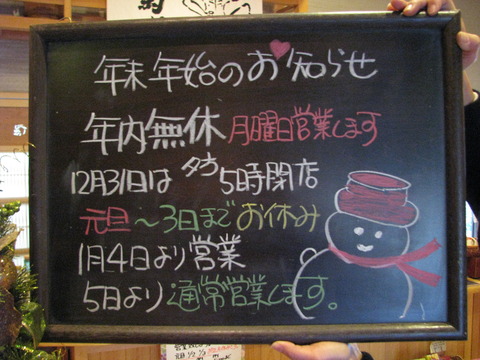 年末年始のお知らせ
年内無休 月曜日営業します
12月31日は 夕方 5時閉店
元旦〜3日までお休み
1月4日より営業
5日より通常営業します。